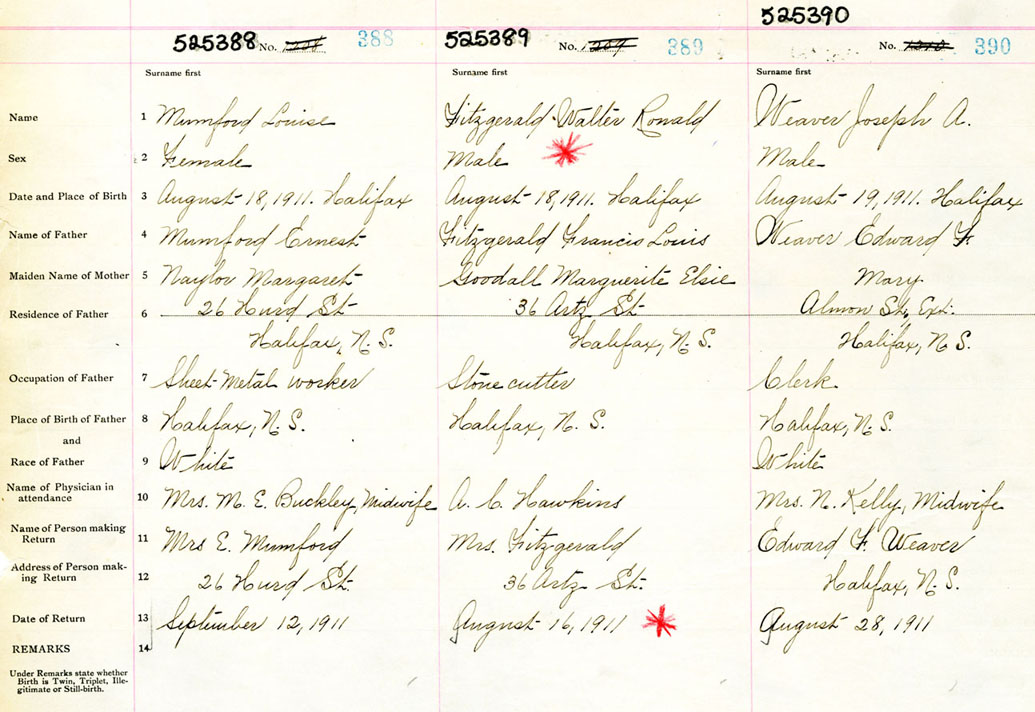 525390
525388 No. 388 525389 No. 389 No. 390
Surname first Surname first Surname first
Name 1 Mumford Louise Fitzgerald Walter Ronald Weaver Joseph A.
Sex 2 Female Male Male
Date and Place of Birth 3 August 18, 1911. Halifax August 18, 1911. Halifax August 19, 1911. Halifax
Name of Father 4 Mumford Ernest Fitzgerald Francis Louis Weaver Edward F.
Maiden Name of Mother 5 Naylor Margaret Goodall Marguerite Elsie Mary
Residence of Father 6 26 Hurd St. 36 Artz St. Almon St, Ext.
Halifax, N. S. Halifax, N. S. Halifax, N S.
Occupation of Father 7 Sheet-Metal worker Stone cutter Clerk.
Place of Birth of Father 8 Halifax, N. S. Halifax, N. S. Halifax, N. S.
and
Race of Father 9 White White
Name of Physician in
attendance 10 Mrs. M. E. Buckley, Midwife A. C. Hawkins Mrs. N. Kelly, Midwife
Name of Person making
Return 11 Mrs E. Mumford Mrs. Fitzgerald Edward F. Weaver
Address of Person mak-
ing Return 12 26 Hurd St. 36 Artz St. Halifax, N. S.
Date of Return 13 September 12, 1911 August 16, 1911 August 28, 1911
REMARKS 14
Under Remarks state whether
Birth is Twin, Triplet, Ille-
gitimate or Still-birth.